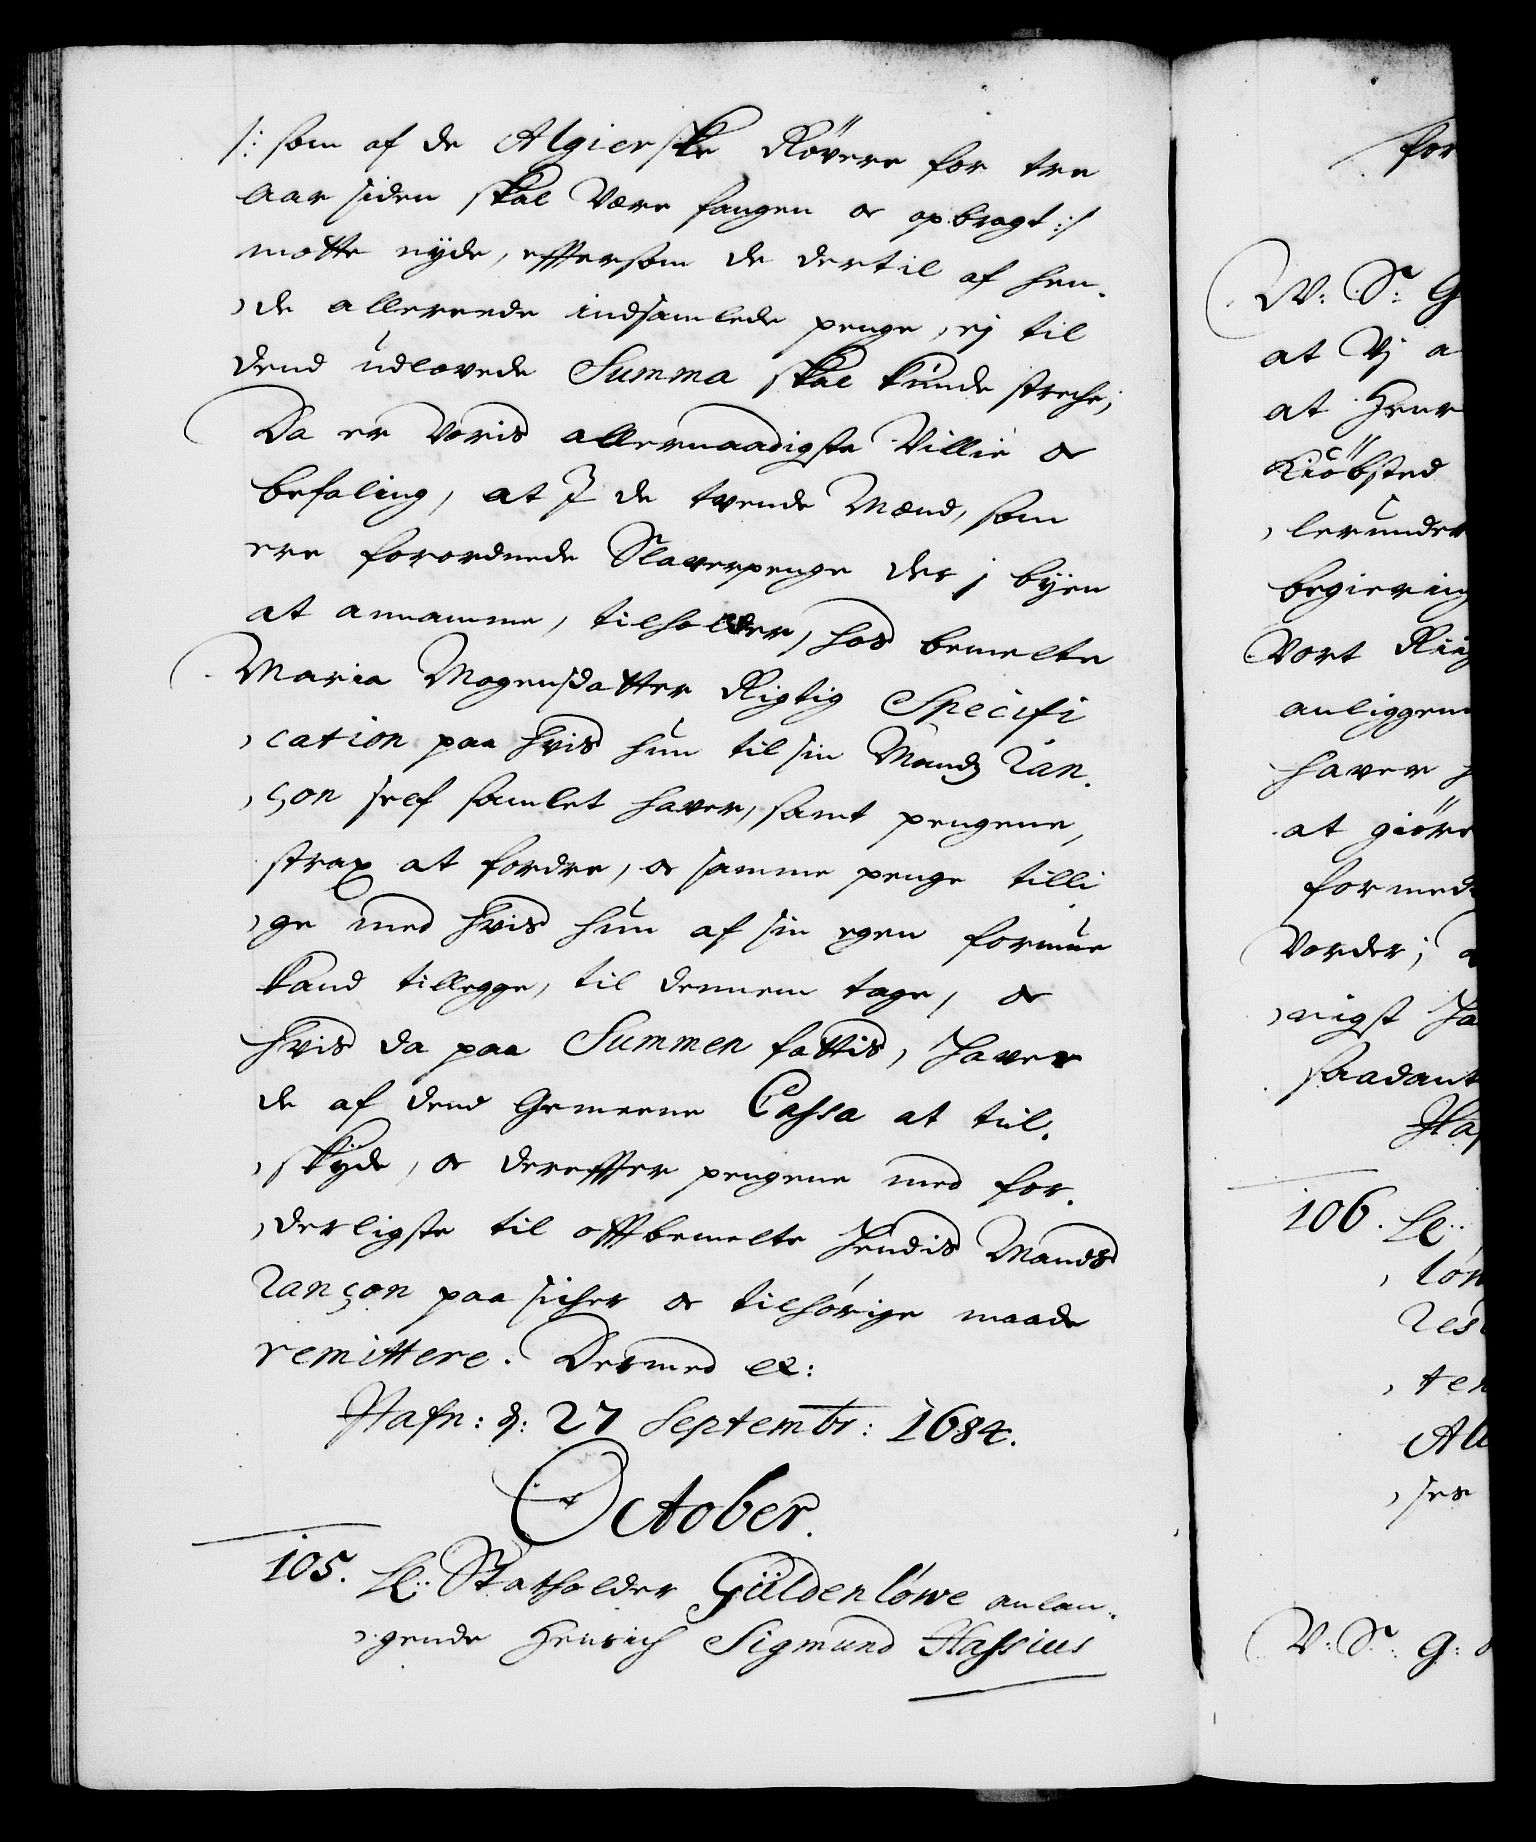 /: som af de Algierske Röfvere for tre
aar siden skal være fangen oc opbragt :/
motte nyde, effersom de dertil af hen¬
de allereede indsamlede penge, ej til
dend udlovede Summa skal kunde streche;
Da er Voris allernaadigste Villie oc
befaling, at I de tvende Mænd, som
ere forordnede Slaverpenge der j byen
at annamme, tilholder, hos bemelte
Maria Mogensdatter Rigtig Specifi
cation paa hvis hun til sin Mands Ran¬
çon self samlet haver, samt pengene,
strax at fordre, oc samme penge tilli
ge med hvis hun af sin egen formue
kand tillegge, til dennem tage, oc
hvis da paa Summen fattis, haver
de af dend Gemeene Cassa at til¬
skyde, oc dereffter pengene med for¬
derligste til offtbemelte hendis Mands
Rançon paa sicher oc tilhörige maade
remittere. Dermed etc:
Hafn: d: 27 Septembr: 1684.
October.
105. H: Statholder Güldenlöwe anlan¬
gende Henrich Sigmund Hassius
for
W: S: G
at Vj a
at Henr
Kiöbsted
lerunder
begiering
Vort Rii
anliggen
haver h
at giöre
formed
Vorder; a
nigst Ha
saadant
Haf
106. H:
lön
Res
ten
All
ses
V: S: G: